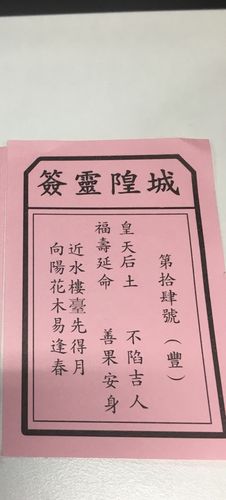 城隍靈簽
第拾肆號（豐）
皇天后土　不陷吉人
福壽延命　善果安身
近水樓臺先得月
向陽花木易逢春